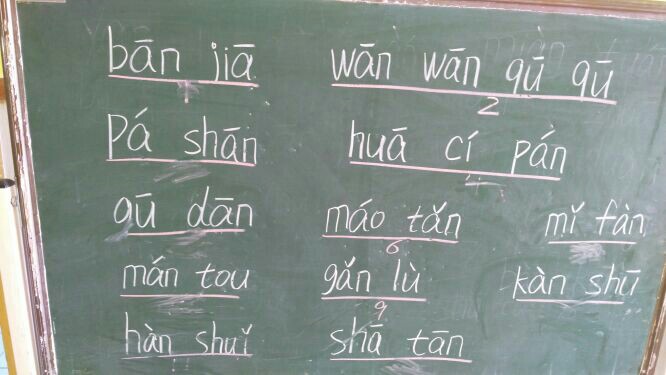 bān jiā wān wān qū qū
2
Pá shān huā cí pán
gū dān máo tǎn mǐ fàn
6
mán tou gǎn lù kàn shū
9
hàn shuǐ shā tān